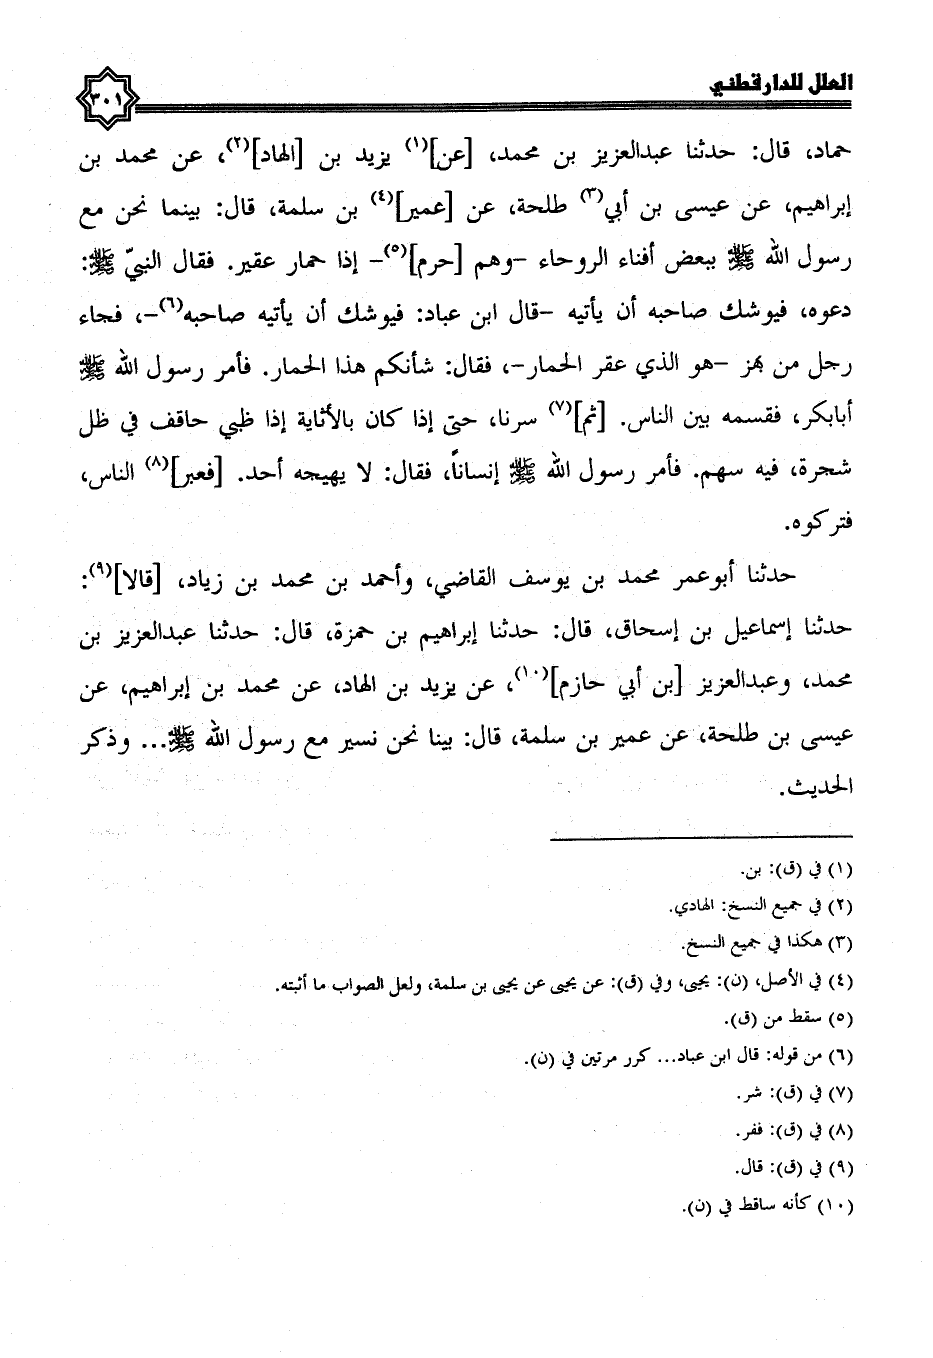 العلل للدارقطني
٣٠١
حماد، قال: حدثنا عبدالعزيز بن محمد، [عن](١) يزيد بن [الهاد](٢)، عن محمد بن
إبراهيم، عن عيسى بن أبي(٣) طلحة، عن [عمير](٤) بن سلمة، قال: بينما نحن مع
رسول الله ﷺ ببعض أفناء الروحاء -وهم [حرم](٥)- إذا حمار عقير. فقال النبيّ ﷺ:
دعوه، فيوشك صاحبه أن يأتيه -قال ابن عباد: فيوشك أن يأتيه صاحبه(٦)-، فجاء
رجل من بهز -هو الذي عقر الحمار-، فقال: شأنكم هذا الحمار. فأمر رسول الله ﷺ
أبابكر، فقسمه بين الناس. [ثم](٧) سرنا، حتى إذا كان بالأثاية إذا ظبي حاقف في ظل
شجرة، فيه سهم. فأمر رسول الله ﷺ إنساناً، فقال: لا يهيجه أحد. [فعبر](٨) الناس،
فتركوه.
حدثنا أبوعمر محمد بن يوسف القاضي، وأحمد بن محمد بن زياد، [قالا](٩):
حدثنا إسماعيل بن إسحاق، قال: حدثنا إبراهيم بن حمزة، قال: حدثنا عبدالعزيز بن
محمد، وعبدالعزيز [بن أبي حازم](١٠)، عن يزيد بن الهاد، عن محمد بن إبراهيم، عن
عيسى بن طلحة، عن عمير بن سلمة، قال: بينا نحن نسير مع رسول الله ﷺ... وذكر
الحديث.
(١) في (ق): بن.
(٢) في جميع النسخ: الهادي.
(٣) هكذا في جميع النسخ.
(٤) في الأصل، (ن): يحيى، وفي (ق): عن يحيى عن يحيى بن سلمة، ولعل الصواب ما أثبته.
(٥) سقط من (ق).
(٦) من قوله: قال ابن عباد... كرر مرتين في (ن).
(٧) في (ق): شر.
(٨) في (ق): ففر.
(٩) في (ق): قال.
(١٠) كأنه ساقط في (ن).